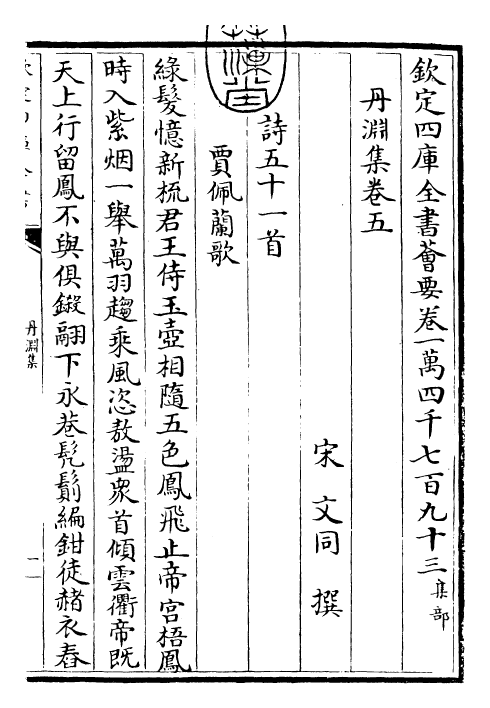 欽定四庫全書薈要卷一萬四千七百九十三集部
丹淵集卷五
宋文同撰
詩五十一首
賈佩蘭歌
綠髮憶新梳君王侍玉壺相隨五色鳳飛止帝宮梧鳳
時入紫烟一舉萬羽趨乘風恣敖盪衆首傾雲衢帝既
天上行留鳳不與俱鎩翮下永巷髠鬎編鉗徒赭衣舂
丹淵集
一